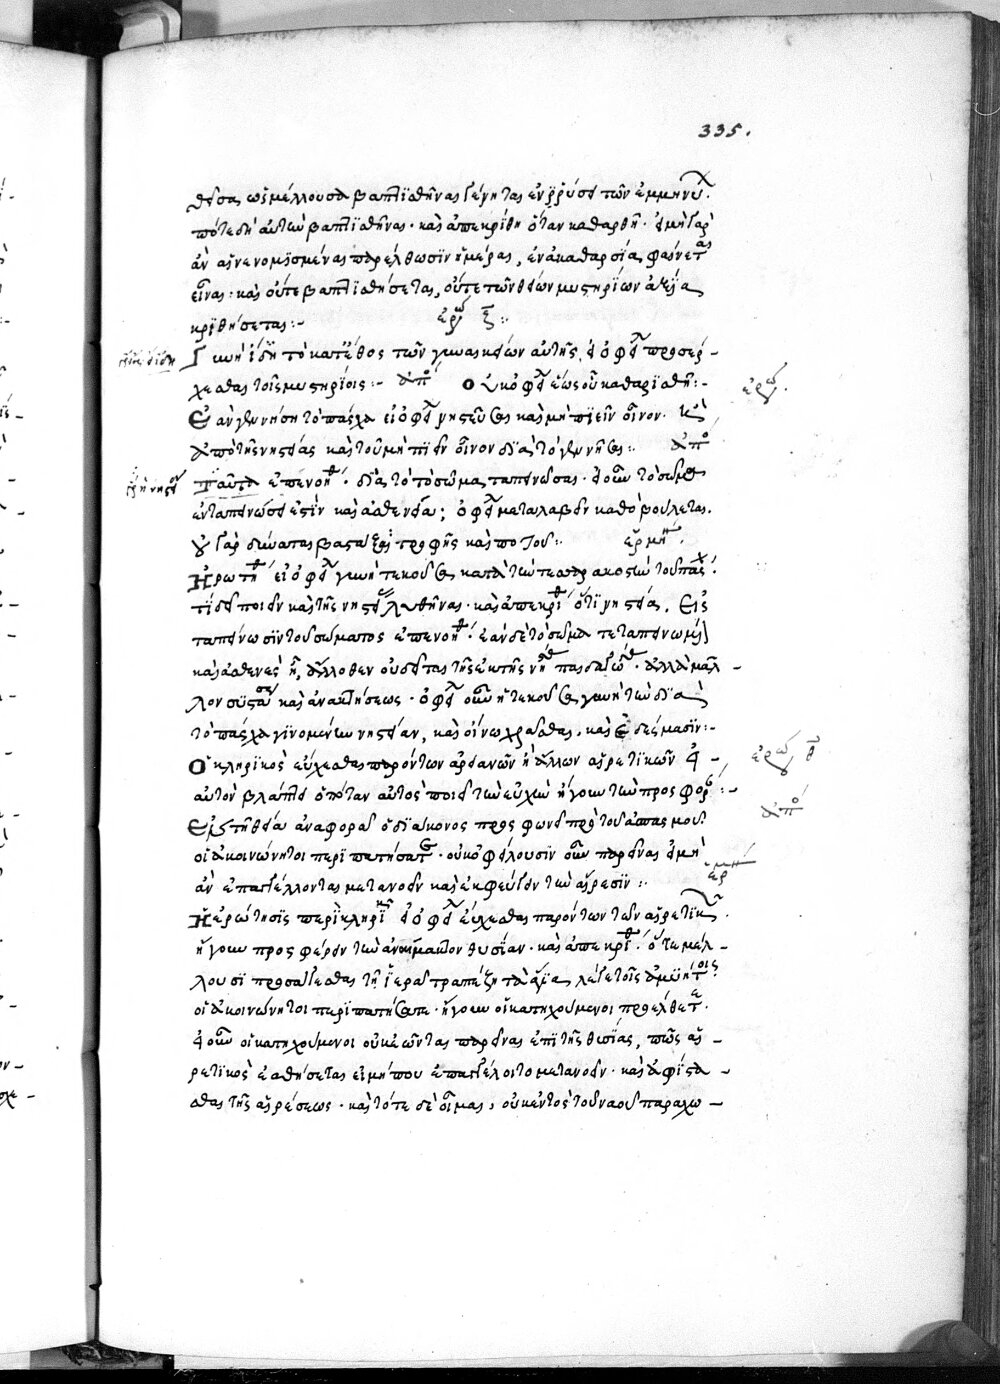 335.
θεῖσα, ὡς μέλλουσα βαπτισθῆναι γένηται ἐν ῥύσει τῶν ἐμμήνων.
πότε δεῖ αὐτὴν βαπτισθῆναι· καὶ ἀπεκρίθη ὅταν καθαρθῇ· εἰ μὴ γὰρ
ἂν αἱ νενομισμέναι παρέλθωσιν ἡμέραι, ἐν ἀκαθαρσίᾳ φαίνεται
εἶναι· καὶ οὔτε βαπτισθήσεται, οὔτε τῶν θείων μυστηρίων ἀξία
κριθήσεται:– ἐρώ
Γυνὴ ἴδῃ τὸ κατ' ἔθος τῶν γυναικείων αὐτῆς, εἰ ὀφείλει προσέρ–
χεσθαι τοῖς μυστηρίοις:– ἀπό Οὐκ ὀφείλει ἕως οὗ καθαρισθῇ:–
ἐρώ.
Ἐὰν γεννήσῃ τὸ πάσχα εἰ ὀφείλει νηστεῦσαι καὶ μὴ πιεῖν οἶνον.
ἀπὸ τῆς νηστείας καὶ τοῦ μὴ πιεῖν οἶνον διὰ τὸ γεννῆσαι: ἀπό
Ταῦτα ἐπενοήθη διὰ τὸ τὸ σῶμα ταπεινῶσαι· εἰ οὖν τὸ σῶμα
ἐν ταπεινώσει ἐστὶν καὶ ἀσθενείᾳ; ὀφείλει μεταλαβεῖν καθὸ βούλεται.
γὰρ δύναται βαστάξαι τροφῆς καὶ ποτοῦ: ἑρμη.
Ἠρωτήθη εἰ ὀφείλει γυνὴ τεκοῦσα κατὰ τὴν τεσσαρακοστὴν τοῦ πάσχα
τί δεῖ ποιεῖν καὶ τῆς νηστείας λυθῆναι· καὶ ἀπεκρίθη ὅτι νηστεία, εἰς
ταπείνωσιν τοῦ σώματος ἐπενοήθη· ἐὰν δὲ τὸ σῶμα τεταπεινωμένον
καὶ ἀσθενὲς ᾖ, ἄλλοθεν οὐ δεῖται τῆς ἐκ τῆς ἀλλὰ μᾶλ–
λον συστάσεως καὶ ἀνακτήσεως· ὀφείλει οὖν ἡ τεκοῦσα γυνὴ τῶν διὰ
τὸ πάσχα γινομένων νηστειῶν, καὶ οἴνῳ χρᾶσθαι, καὶ ἐδέσμασιν:–
Ὁ κληρικὸς εὔχεσθαι παρόντων ἀρειανῶν ἢ ἄλλων αἱρετικῶν εἰ –
ἐρώ θ
αὐτὸν βλάπτει ὁπόταν αὐτὸς ποιεῖ τὴν εὐχὴν ἤγουν τὴν προσφοράν:–
ἀπό
Ἐν τῇ θείᾳ ἀναφορᾷ ὁ διάκονος προσφωνεῖ πρὸ τοῦ ἀσπασμοῦ
οἱ ἀκοινώνητοι περιπατήσατε· οὐκ ὀφείλουσιν οὖν παρεῖναι εἰ μὴ
ἂν ἐπαγγέλλονται μετανοεῖν καὶ ἐκφεύγειν τὴν αἵρεσιν:
ἑρμη
Ἡ ἐρώτησις περὶ κληρικοῦ εἰ ὀφείλει εὔχεσθαι παρόντων τῶν αἱρετικῶν.
ἤγουν προσφέρειν τὴν ἀναίμακτον θυσίαν· καὶ ἀπεκρίθη· ὅτι μέλ–
λουσι προσάγεσθαι τῇ ἱερᾷ τραπέζῃ τὰ ἅγια λέγε τοῖς ἀμυήτοις
οἱ ἀκοινώνητοι περιπατήσατε· ἤγουν οἱ κατηχούμενοι προέλθετε.
εἰ οὖν οἱ κατηχούμενοι οὐκ ἐῶνται παρεῖναι ἐπὶ τῆς θυσίας, πῶς αἱ–
ρετικὸς ἐαθήσεται εἰ μή που ἐπαγγέλοιτο μετανοεῖν· καὶ ἀφίστα–
σθαι τῆς αἱρέσεως· καὶ τότε δὲ οἶμαι, οὐκ ἐντὸς τοῦ ναοῦ παραχω–